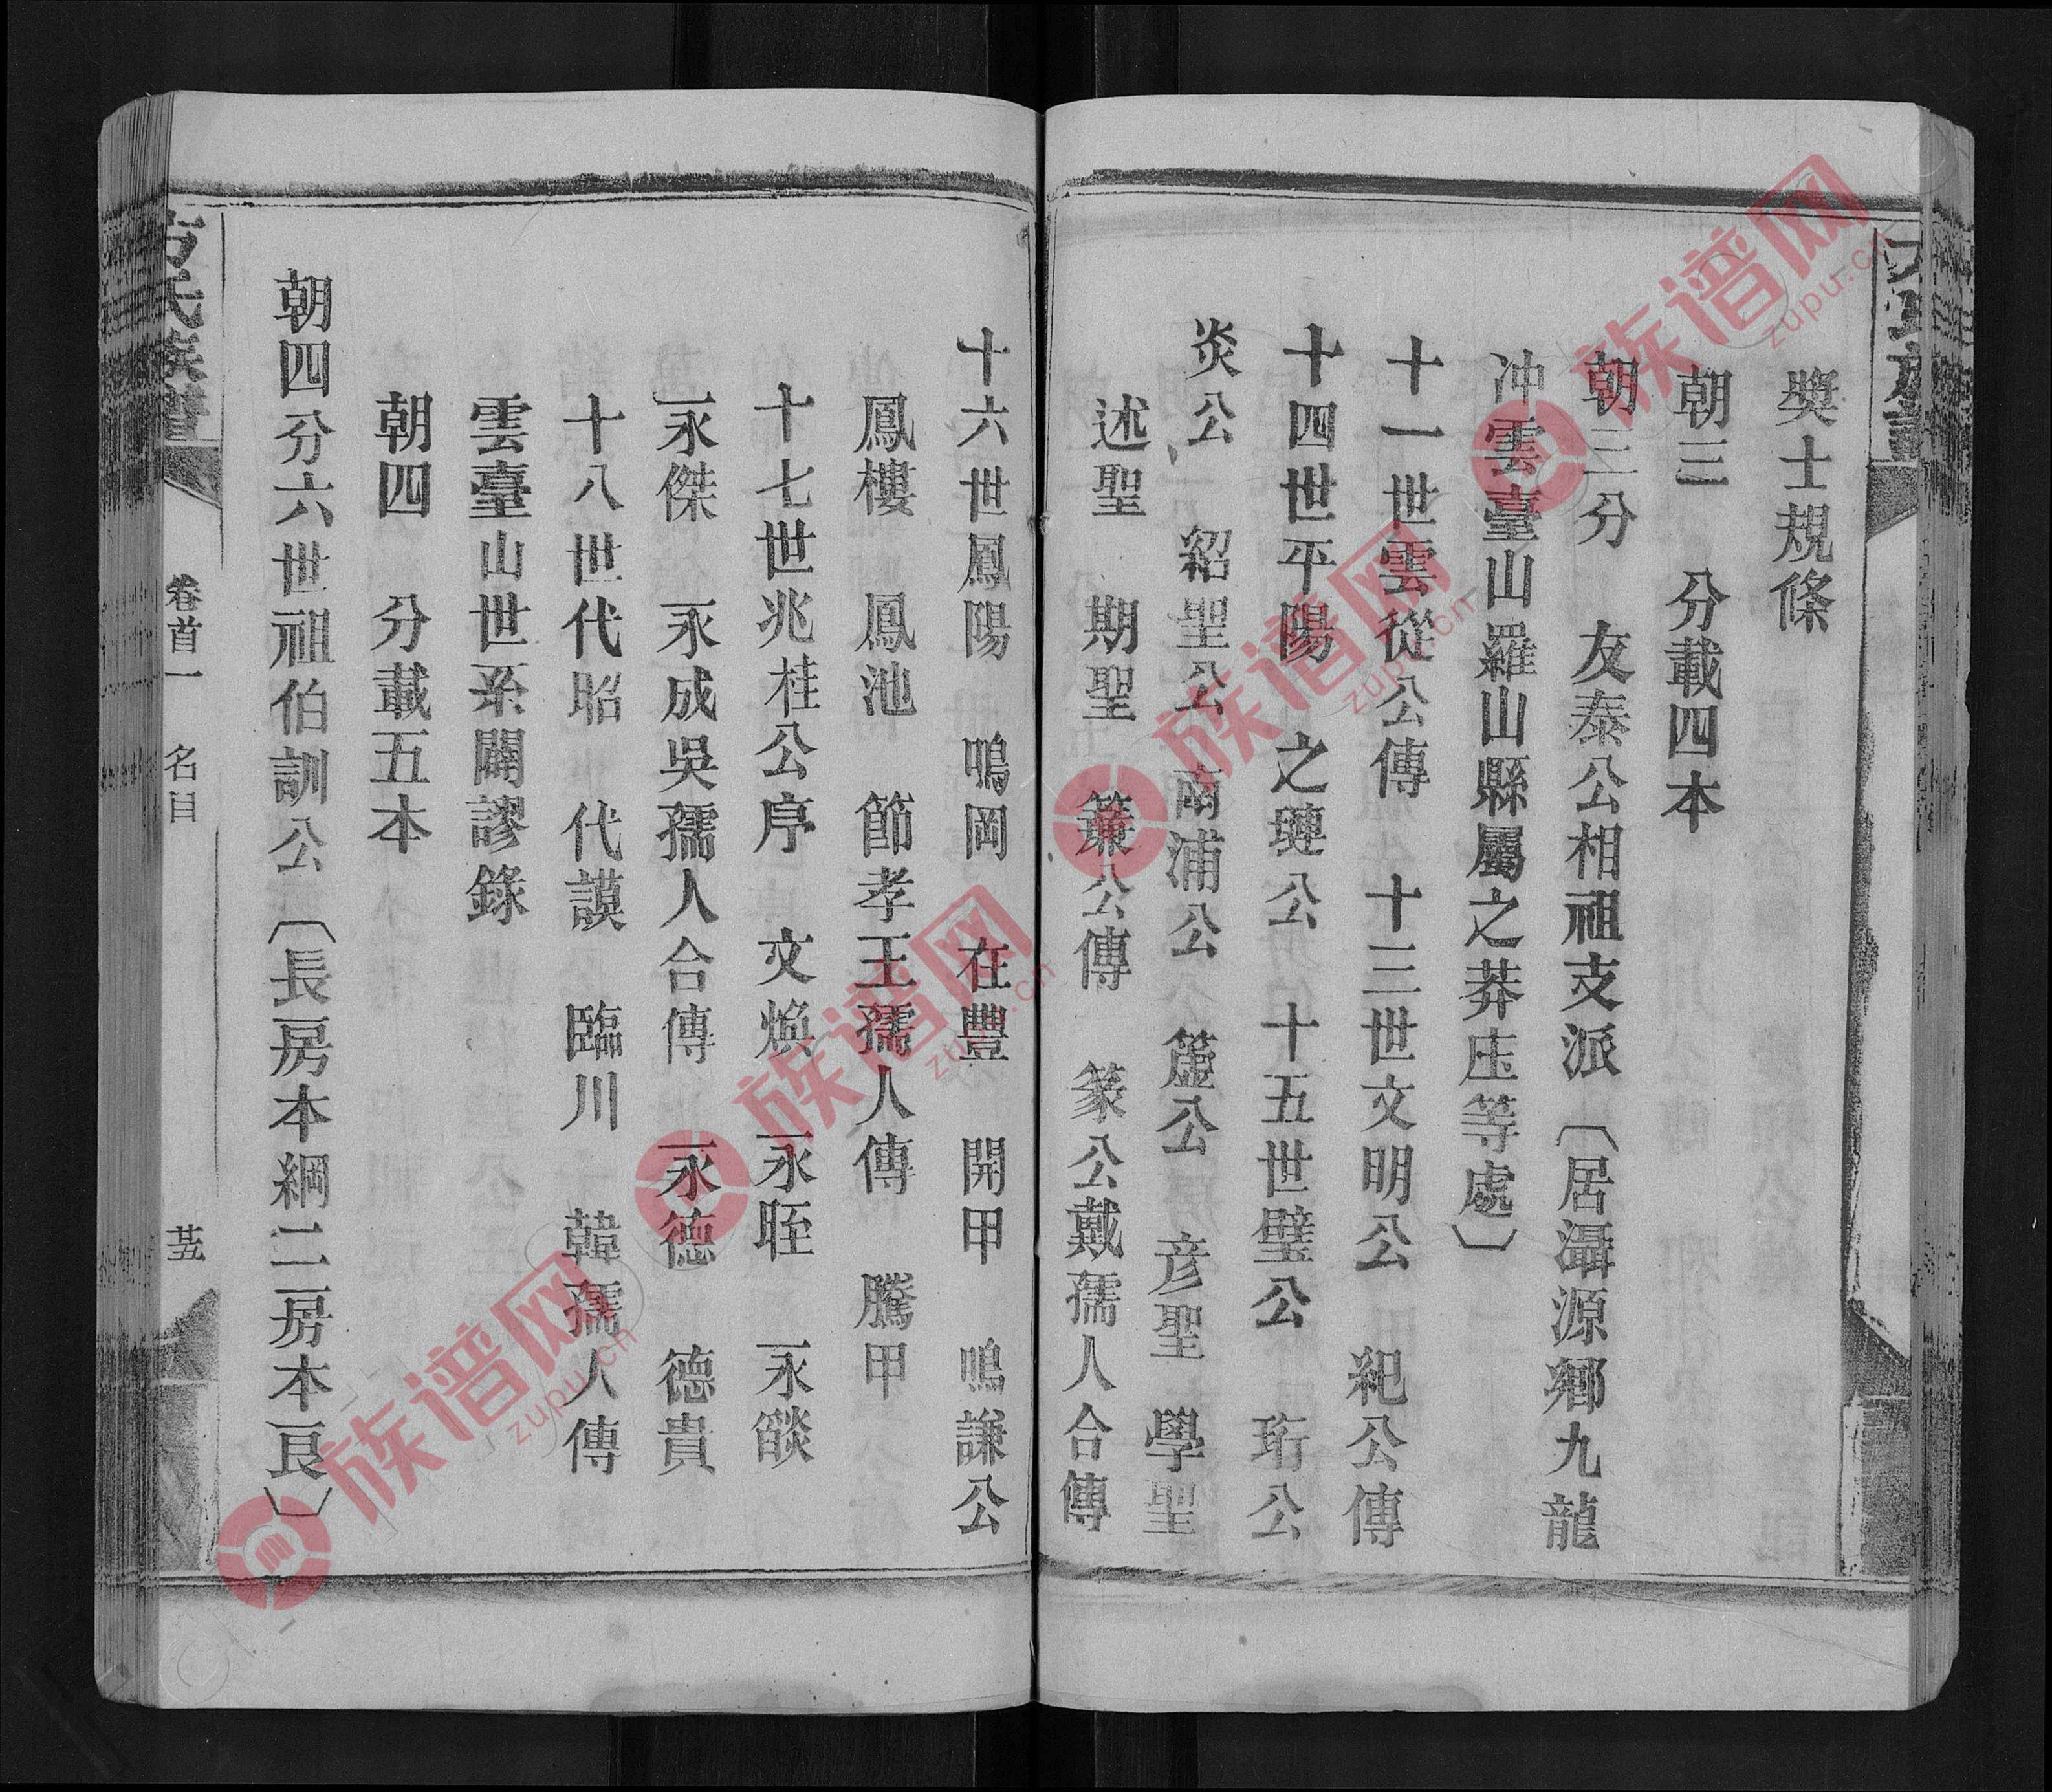 獎士規條
朝三　分載四本
朝三分　友泰公相祖支派〔居灄源鄉九龍
冲雲臺山羅山縣屬之莽庄等處〕
十一世雲從公傳　十三世文明公　紀公傳
十四世平陽　之璉公　十五世璧公　珩公
炎公　紹聖公　南浦公　簴公　彦聖　學聖
述聖　期聖　簾公傳　篆公戴孺人合傳
十六世鳳陽　鳴岡　在豐　開甲　鳴謙公
鳳樓　鳳池　節孝王孺人傳　騰甲
十七世兆桂公序　文煥　永晊　永燄
永傑　永成吳孺人合傳　永德　德貴
十八世代昭　代謨　臨川　韓孺人傳
雲臺山世系闢謬錄
朝四　分載五本
朝四分六世祖伯訓公〔長房本綱二房本良〕
方氏族譜
卷首一　名目
廿五
族谱网
zupu.cn
族谱网
zupu.cn
族谱网
zupu.cn
族谱网
zupu.cn